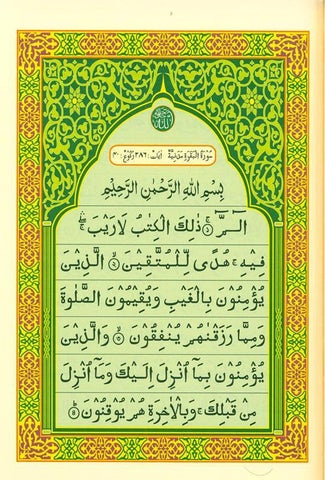 الله
سُورَةُ الْبَقَرَةِ مَدَنِيَّةٌ اٰيَات: ٢٨٦ رُكُوع: ٤٠
بِسْمِ اللّٰهِ الرَّحْمٰنِ الرَّحِيْمِ
الٓمّٓ ۚ ذٰلِكَ الْكِتٰبُ لَا رَيْبَ ۛۖ
فِيْهِ ۛۚ هُدًى لِّلْمُتَّقِيْنَ ۙ الَّذِيْنَ
يُؤْمِنُوْنَ بِالْغَيْبِ وَيُقِيْمُوْنَ الصَّلٰوةَ
وَمِمَّا رَزَقْنٰهُمْ يُنْفِقُوْنَ ۙ وَالَّذِيْنَ
يُؤْمِنُوْنَ بِمَآ اُنْزِلَ اِلَيْكَ وَمَآ اُنْزِلَ
مِنْ قَبْلِكَ ۚ وَبِالْاٰخِرَةِ هُمْ يُوْقِنُوْنَ ۗ